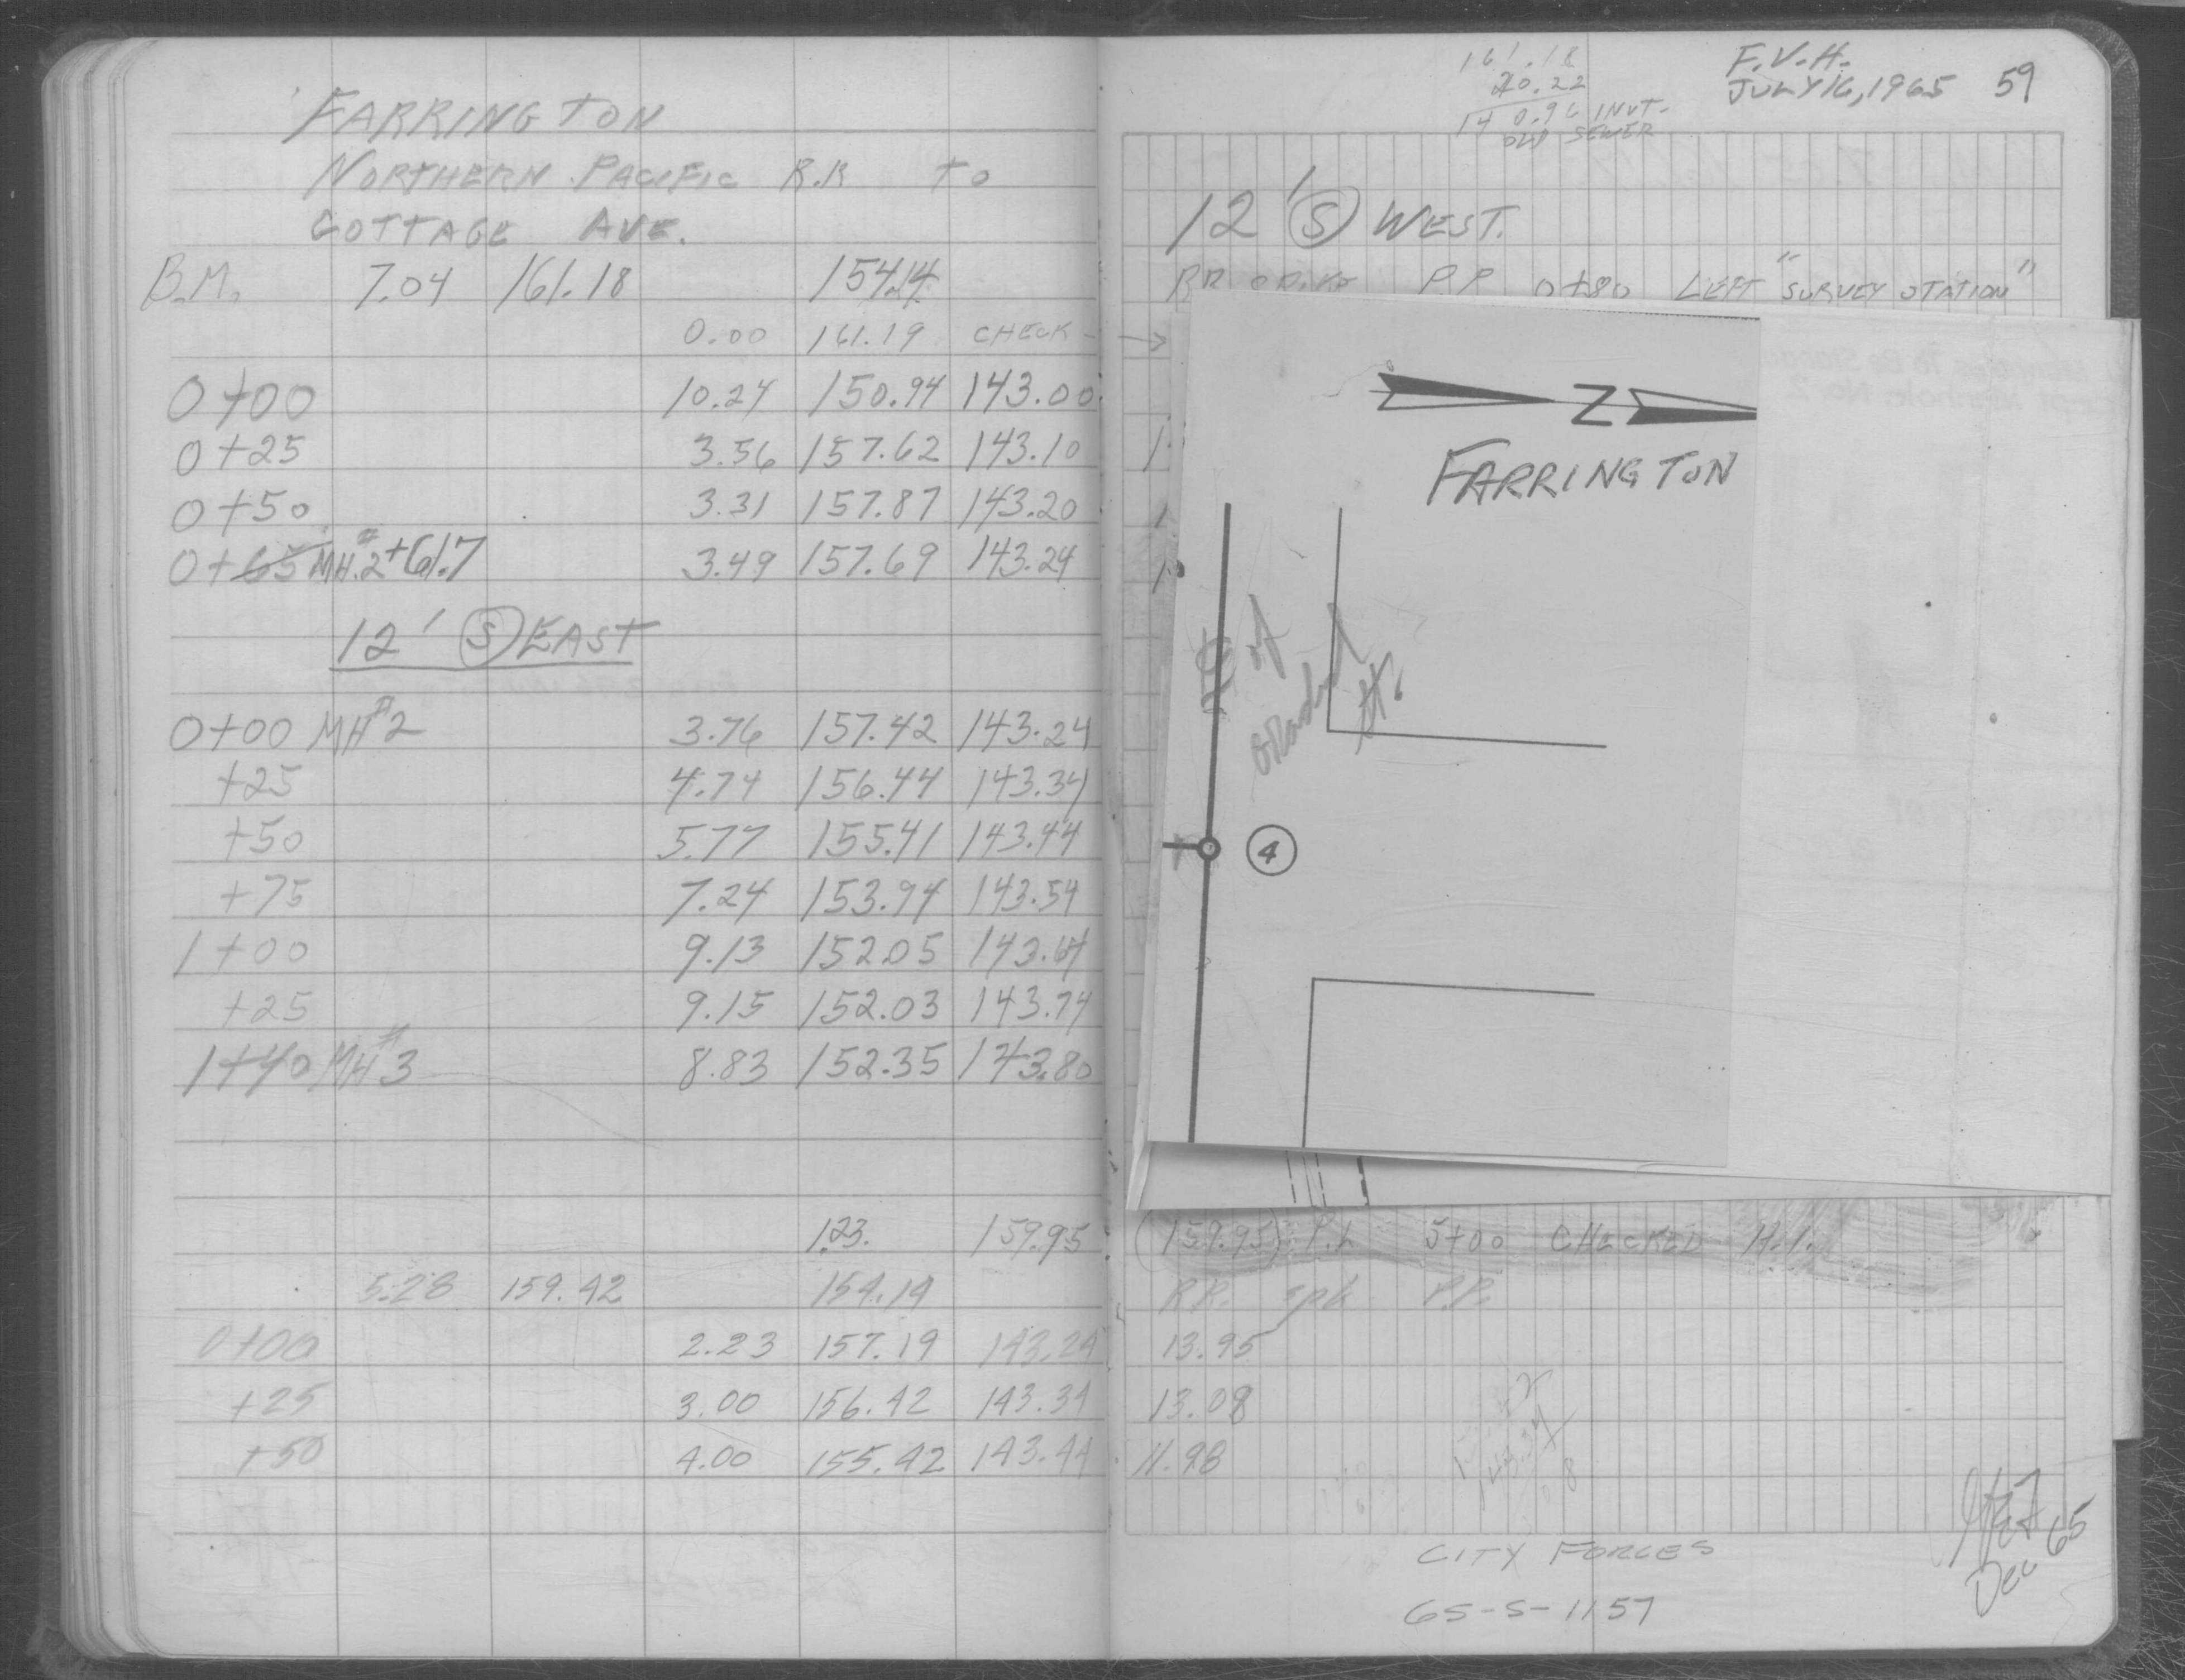 FARRINGTON
NORTHERN PACIFIC R.R TO
COTTAGE AVE.
B.M. 7.04 161.18 154.14
0.00 161.19 CHECK →
0+00 10.24 150.94 143.00
0+25 3.56 157.62 143.10
0+50 3.31 157.87 143.20
0+65 MH.#2 +61.7 3.49 157.69 143.24
12' S EAST
0+00 MH#2 3.76 157.42 143.24
+25 4.74 156.44 143.34
+50 5.77 155.41 143.44
+75 7.24 153.94 143.54
1+00 9.13 152.05 143.64
+25 9.15 152.03 143.74
1+40 MH#3 8.83 152.35 143.80
1.23. 159.95
5.28 159.42 154.14
0+00 2.23 157.19 143.24
+25 3.00 156.42 143.34
+50 4.00 155.42 143.44
161.18
20.22
140.96 INVT.
OLD SEWER
F.V.H.
JULY 16, 1965 59
12' S WEST.
RR SPIKE P.P. 0+80 LEFT "SURVEY STATION"
N
FARRINGTON
of
St.
4
(159.95) 5+00 CHECKED H.I.
RR. spk P.P.
13.95
13.08
11.98
CITY FORCES
65-S-1157
Dec 65